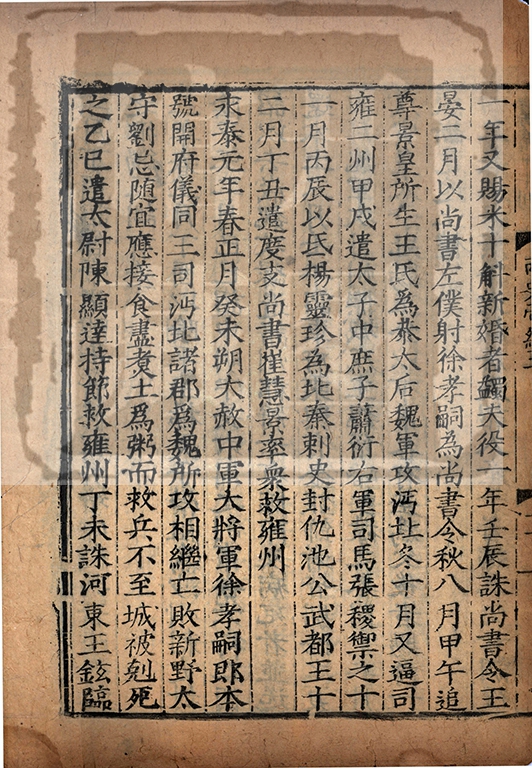 一年又賜米十斛新婚者蠲夫役一年壬辰誅尚書令王
晏二月以尚書左僕射徐孝嗣為尚書令秋八月甲午追
尊景皇所生王氏為恭太后魏軍攻沔北冬十月又逼司
雍二州甲戌遣太子中庶子蕭衍右軍司馬張稷禦之十
一月丙辰以氐楊靈珍為北秦刺史封仇池公武都王十
二月丁丑遣度支尚書崔慧景率衆救雍州
永泰元年春正月癸未朔大赦中軍大將軍徐孝嗣即本
號開府儀同三司沔北諸郡為魏所攻相繼亡敗新野太
守劉忌随宜應接食盡煑土為粥而救兵不至城被剋死
之乙巳遣太尉陳顯達持節救雍州丁未誅河東王鉉臨